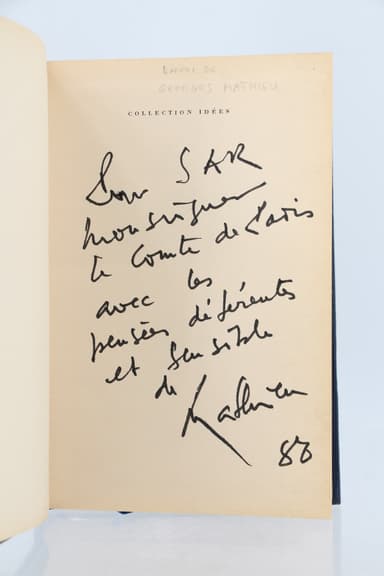 Envoi de
Georges Mathieu
COLLECTION IDÉES
Pour SAR
Monseigneur
le Comte de Paris
avec les
pensées déférentes
et sensible
de
Mathieu
88